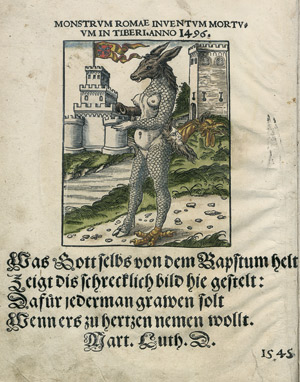 MONSTRVM ROMAE INVENTVM MORTV-
VM IN TIBERI. ANNO 1496.
Was Gott selbs von dem Bapstum helt
Zeigt dis schrecklich bild hie gestelt:
Dafür jederman grawen solt
Wenn ers zu hertzen nemen wollt.
Mart. Luth. D.
1545